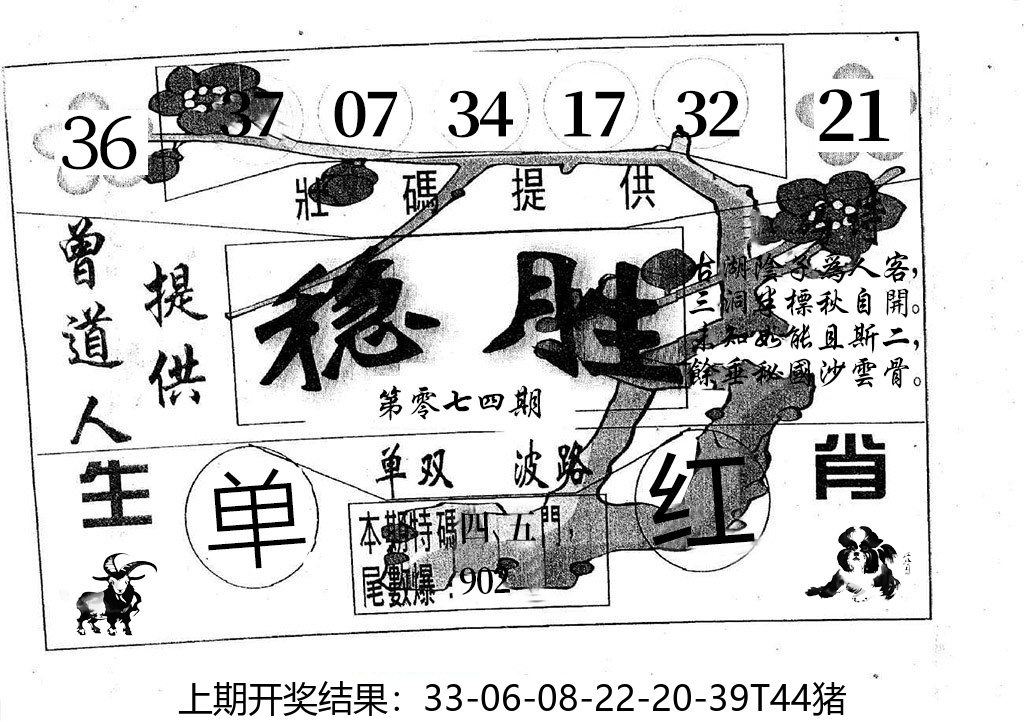 36 37 07 34 17 32 21
壯碼提供
曾道人
提供
稳胜
第零七四期
古湖陰予為人客，
三洞生標秋自開。
未知如能且斯二，
餘垂秘國沙雲骨。
生肖
单双 波路
单 红
本期特碼四、五門，
尾數爆：902
上期开奖结果：33-06-08-22-20-39T44猪